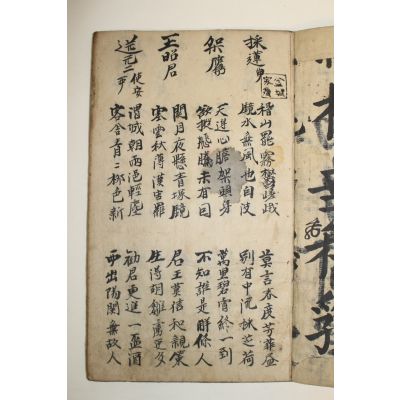 採蓮曲
稽山罷霧鬱嵯峨
鏡水無風也自波
莫言春度芳菲盡
別有中流採芰荷
架鷹
天邊心膽架頭身
欲擬態騰未有因
萬里碧霄終一到
不知誰是解絛人
王昭君
關月夜懸青塚鏡
寒雲秋薄漢宮羅
君王莫信和親策
生得胡雛虜更多
送元二使安西
渭城朝雨浥輕塵
客舍青々柳色新
勸君更進一盃酒
西出陽關無故人